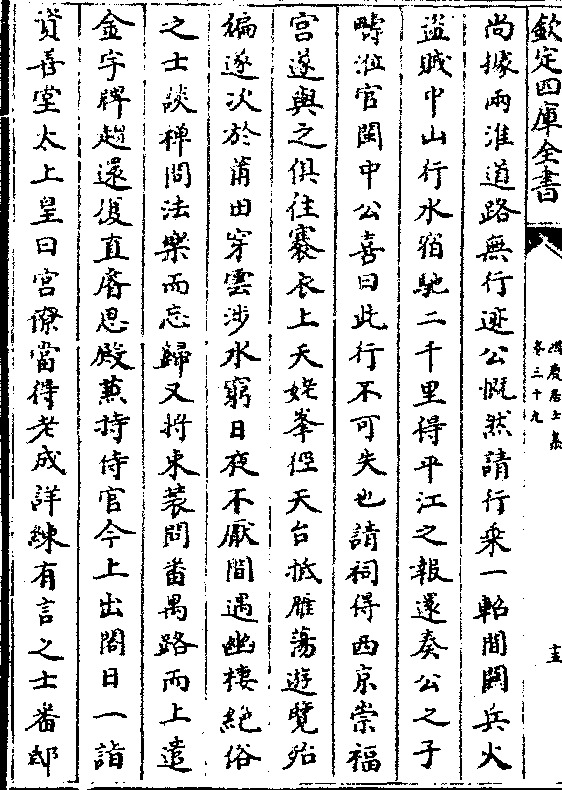 欽定四庫全書
鴻慶居士集
卷三十九
尚據兩淮道路無行迹公慨然請行乗一軺間闗兵火
盗賊中山行水宿馳二千里得平江之報還奏公之子
疇涖官閩中公喜曰此行不可失也請祠得西京崇福
宫遂與之俱住褰衣上天姥峯徑天台抵雁蕩遊覽殆
徧遂次於莆田穿雲涉水窮日夜不厭間遇幽棲絶俗
之士談禪問法樂而忘歸又將束裝問番禺路而上遣
金字牌趨還復直睿思殿兼持侍官今上出閤日一詣
資善堂太上皇曰宫僚當得老成詳練有言之士畨邸